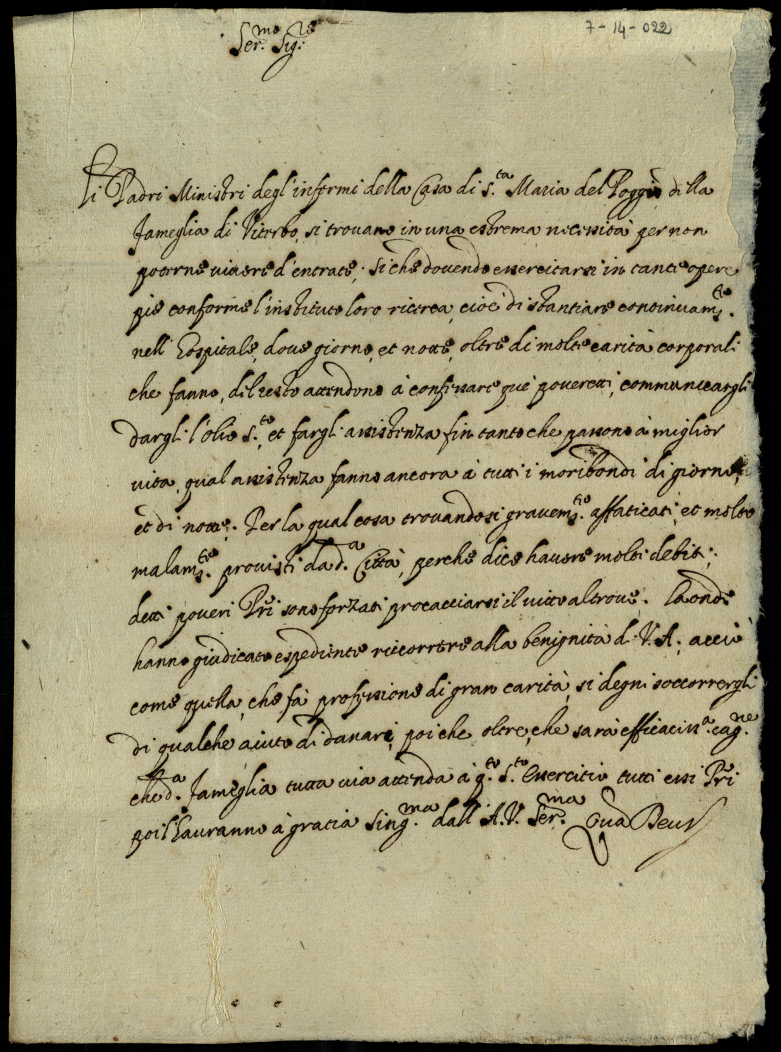 7-14-022
Ser.mo Sig.re
Li Padri Ministri degl'infermi della Casa di S.ta Maria del Poggio della
fameglia di Viterbo, si trovano in una estrema necessità per non
poterne vivere d'entrate; Si che dovendo essercitarsi in tante opere
pie conforme l'instituto loro ricerca, cioè di stantiare continuam.te
nell'Hospitale, dove giorno, et notte, oltre di molte carità corporali
che fanno, del resto attendono à confessare que' poveretti, communicargli
dargli l'olio S.to, et fargli assistenza fin tanto che passono à miglior
vita, qual assistenza fanno ancora à tutti i moribondi di giorno,
et di notte. Per la qual cosa trovandosi gravem.te affaticati, et molto
malam.te provisti da d.a Città, perche dice havere molti debiti;
detti poveri P̃ri sono forzati procacciarsi il vitto altrove. Laonde
hanno giudicato espediente riccorrere alla benignità di V. A., acciò
come quella, che fà professione di gran carità, si degni soccorrergli
di qualche aiuto di danari, poi che oltre, che sarà efficaciss.a cag.ne
che d.a fameglia tutta via attenda à q.to S.to essercitio tutti essi P̃ri
poi l'hauranno à gracia sing.ma dall'A.V. Ser.ma